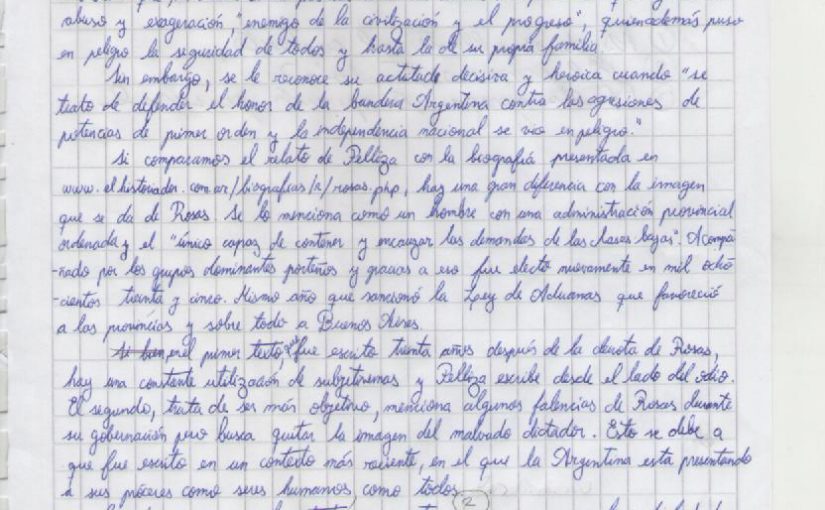 abuso y exageración, "enemigo de la civilización y el progreso", quien además, puso
en peligro la seguridad de todos y hasta la de su propia familia.
Sin embargo, se le reconoce su actitud decisiva y heroica cuando "se
trato de defender el honor de la bandera Argentina contra las agresiones de
potencias de primer orden y la independencia nacional se vio en peligro."
Si comparamos el relato de Pelliza con la biografía presentada en
www.elhistoriador.com.ar/biografias/r/rosas.php, hay una gran diferencia con la imagen
que se da de Rosas. Se lo menciona como un hombre con una administración provincial
ordenada y el "único capaz de contener y encauzar las demandas de las clases bajas". Acompa
-ñado por los grupos dominantes porteños y gracias a eso fue electo nuevamente en mil ocho
-cientos treinta y cinco. Mismo año que sancionó la Ley de Aduanas que favoreció
a las provincias y sobre todo a Buenos Aires.
Si bien, en el primer texto, que fue escrito treinta años después de la derrota de Rosas,
hay una constante utilización de subjetivemas y Pelliza escribe desde el lado del odio.
El segundo, trata de ser más objetivo, menciona algunas falencias de Rosas durante
su gobernación pero busca quitar la imagen del malvado dictador. Esto se debe a
que fue escrito en un contexto más reciente, en el que la Argentina esta presentando
a sus próceres como seres humanos, como todos.
2